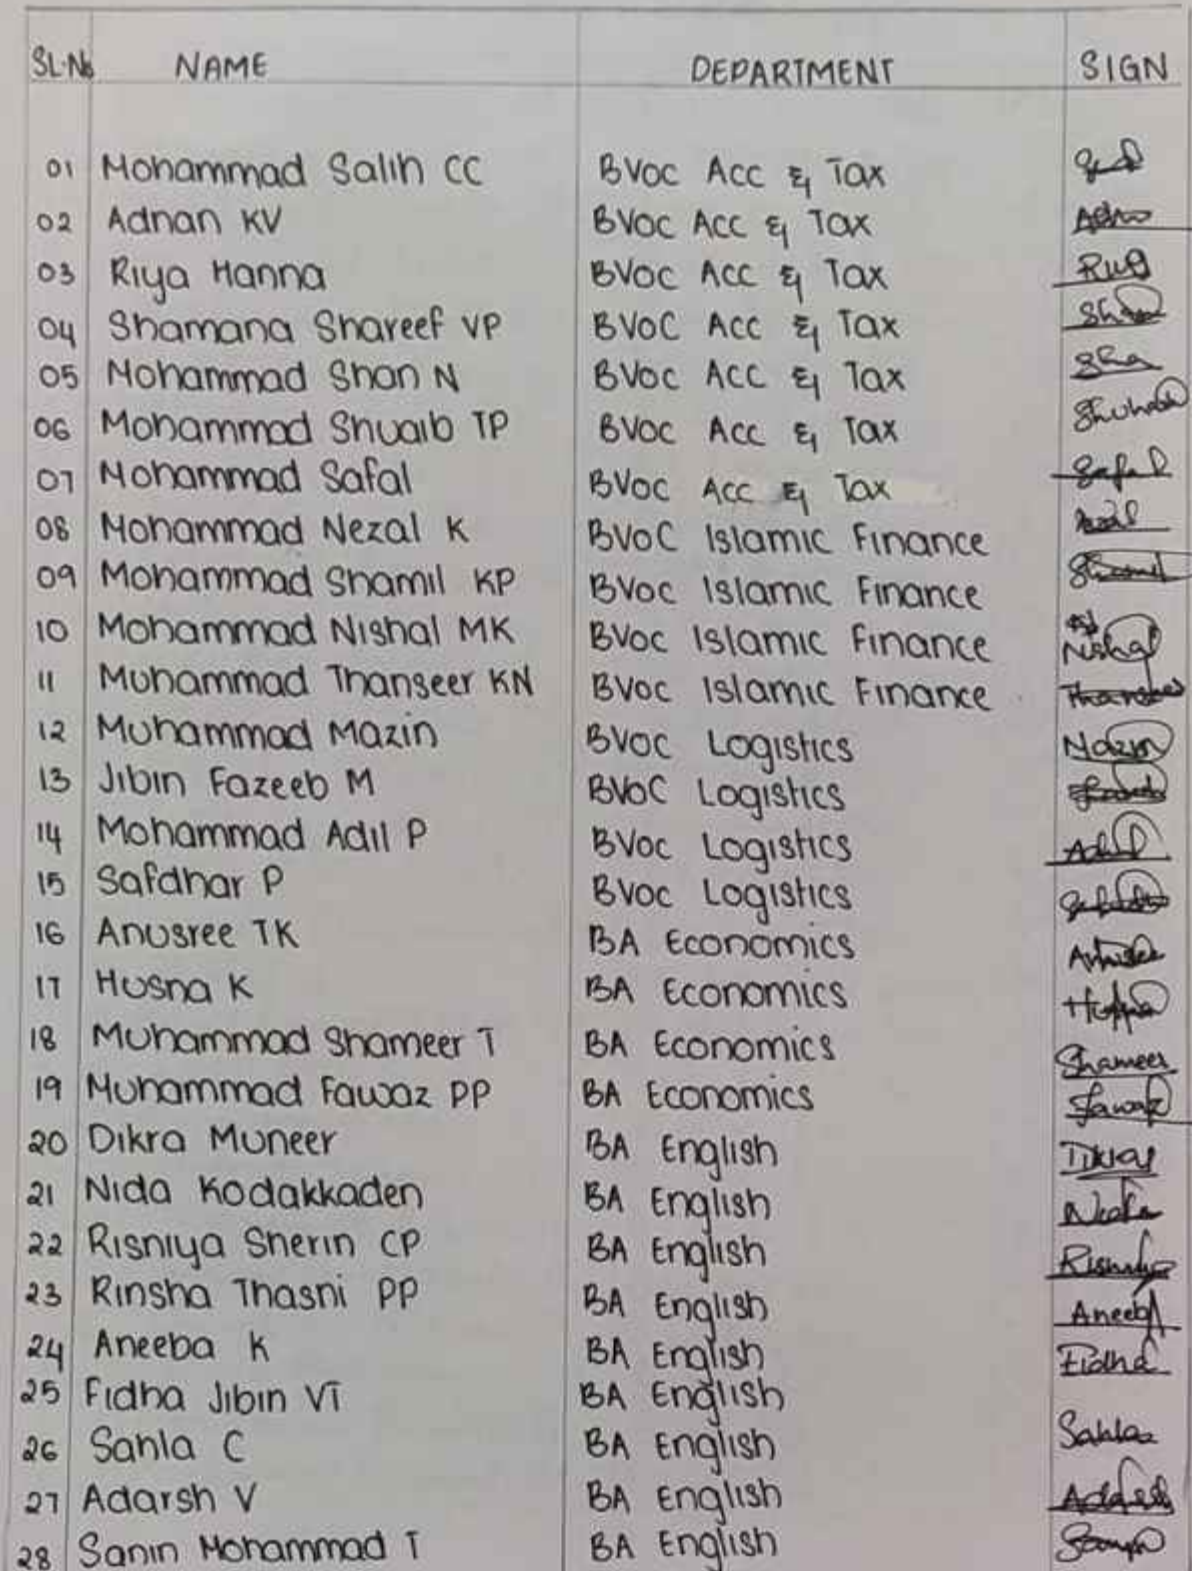 SL.No NAME DEPARTMENT SIGN
01 Mohammad Salih CC BVoc Acc & Tax
02 Adnan KV BVoc Acc & Tax
03 Riya Hanna BVoc Acc & Tax
04 Shamana Shareef VP BVoC Acc & Tax
05 Mohammad Shan N BVoc Acc & Tax
06 Mohammad Shuaib TP BVoc Acc & Tax
07 Mohammad Safal BVoc Acc & Tax Safal
08 Mohammad Nezal K BVoC Islamic Finance
09 Mohammad Shamil KP BVoc Islamic Finance Shamil
10 Mohammad Nishal MK BVoc Islamic Finance Nishal
11 Muhammad Thanseer KN BVoc Islamic Finance
12 Muhammad Mazin BVoc Logistics
13 Jibin Fazeeb M BVoC Logistics
14 Mohammad Adil P BVoc Logistics
15 Safdhar P BVoc Logistics
16 Anusree TK BA Economics
17 Husna K BA Economics
18 Muhammad Shameer T BA Economics Shameer
19 Muhammad Fawaz PP BA Economics Fawaz
20 Dikra Muneer BA English
21 Nida Kodakkaden BA English
22 Risniya Sherin CP BA English
23 Rinsha Thasni PP BA English
24 Aneeba K BA English
25 Fidha Jibin VT BA English
26 Sahla C BA English Sahla
27 Adarsh V BA English
28 Sanin Mohammad T BA English